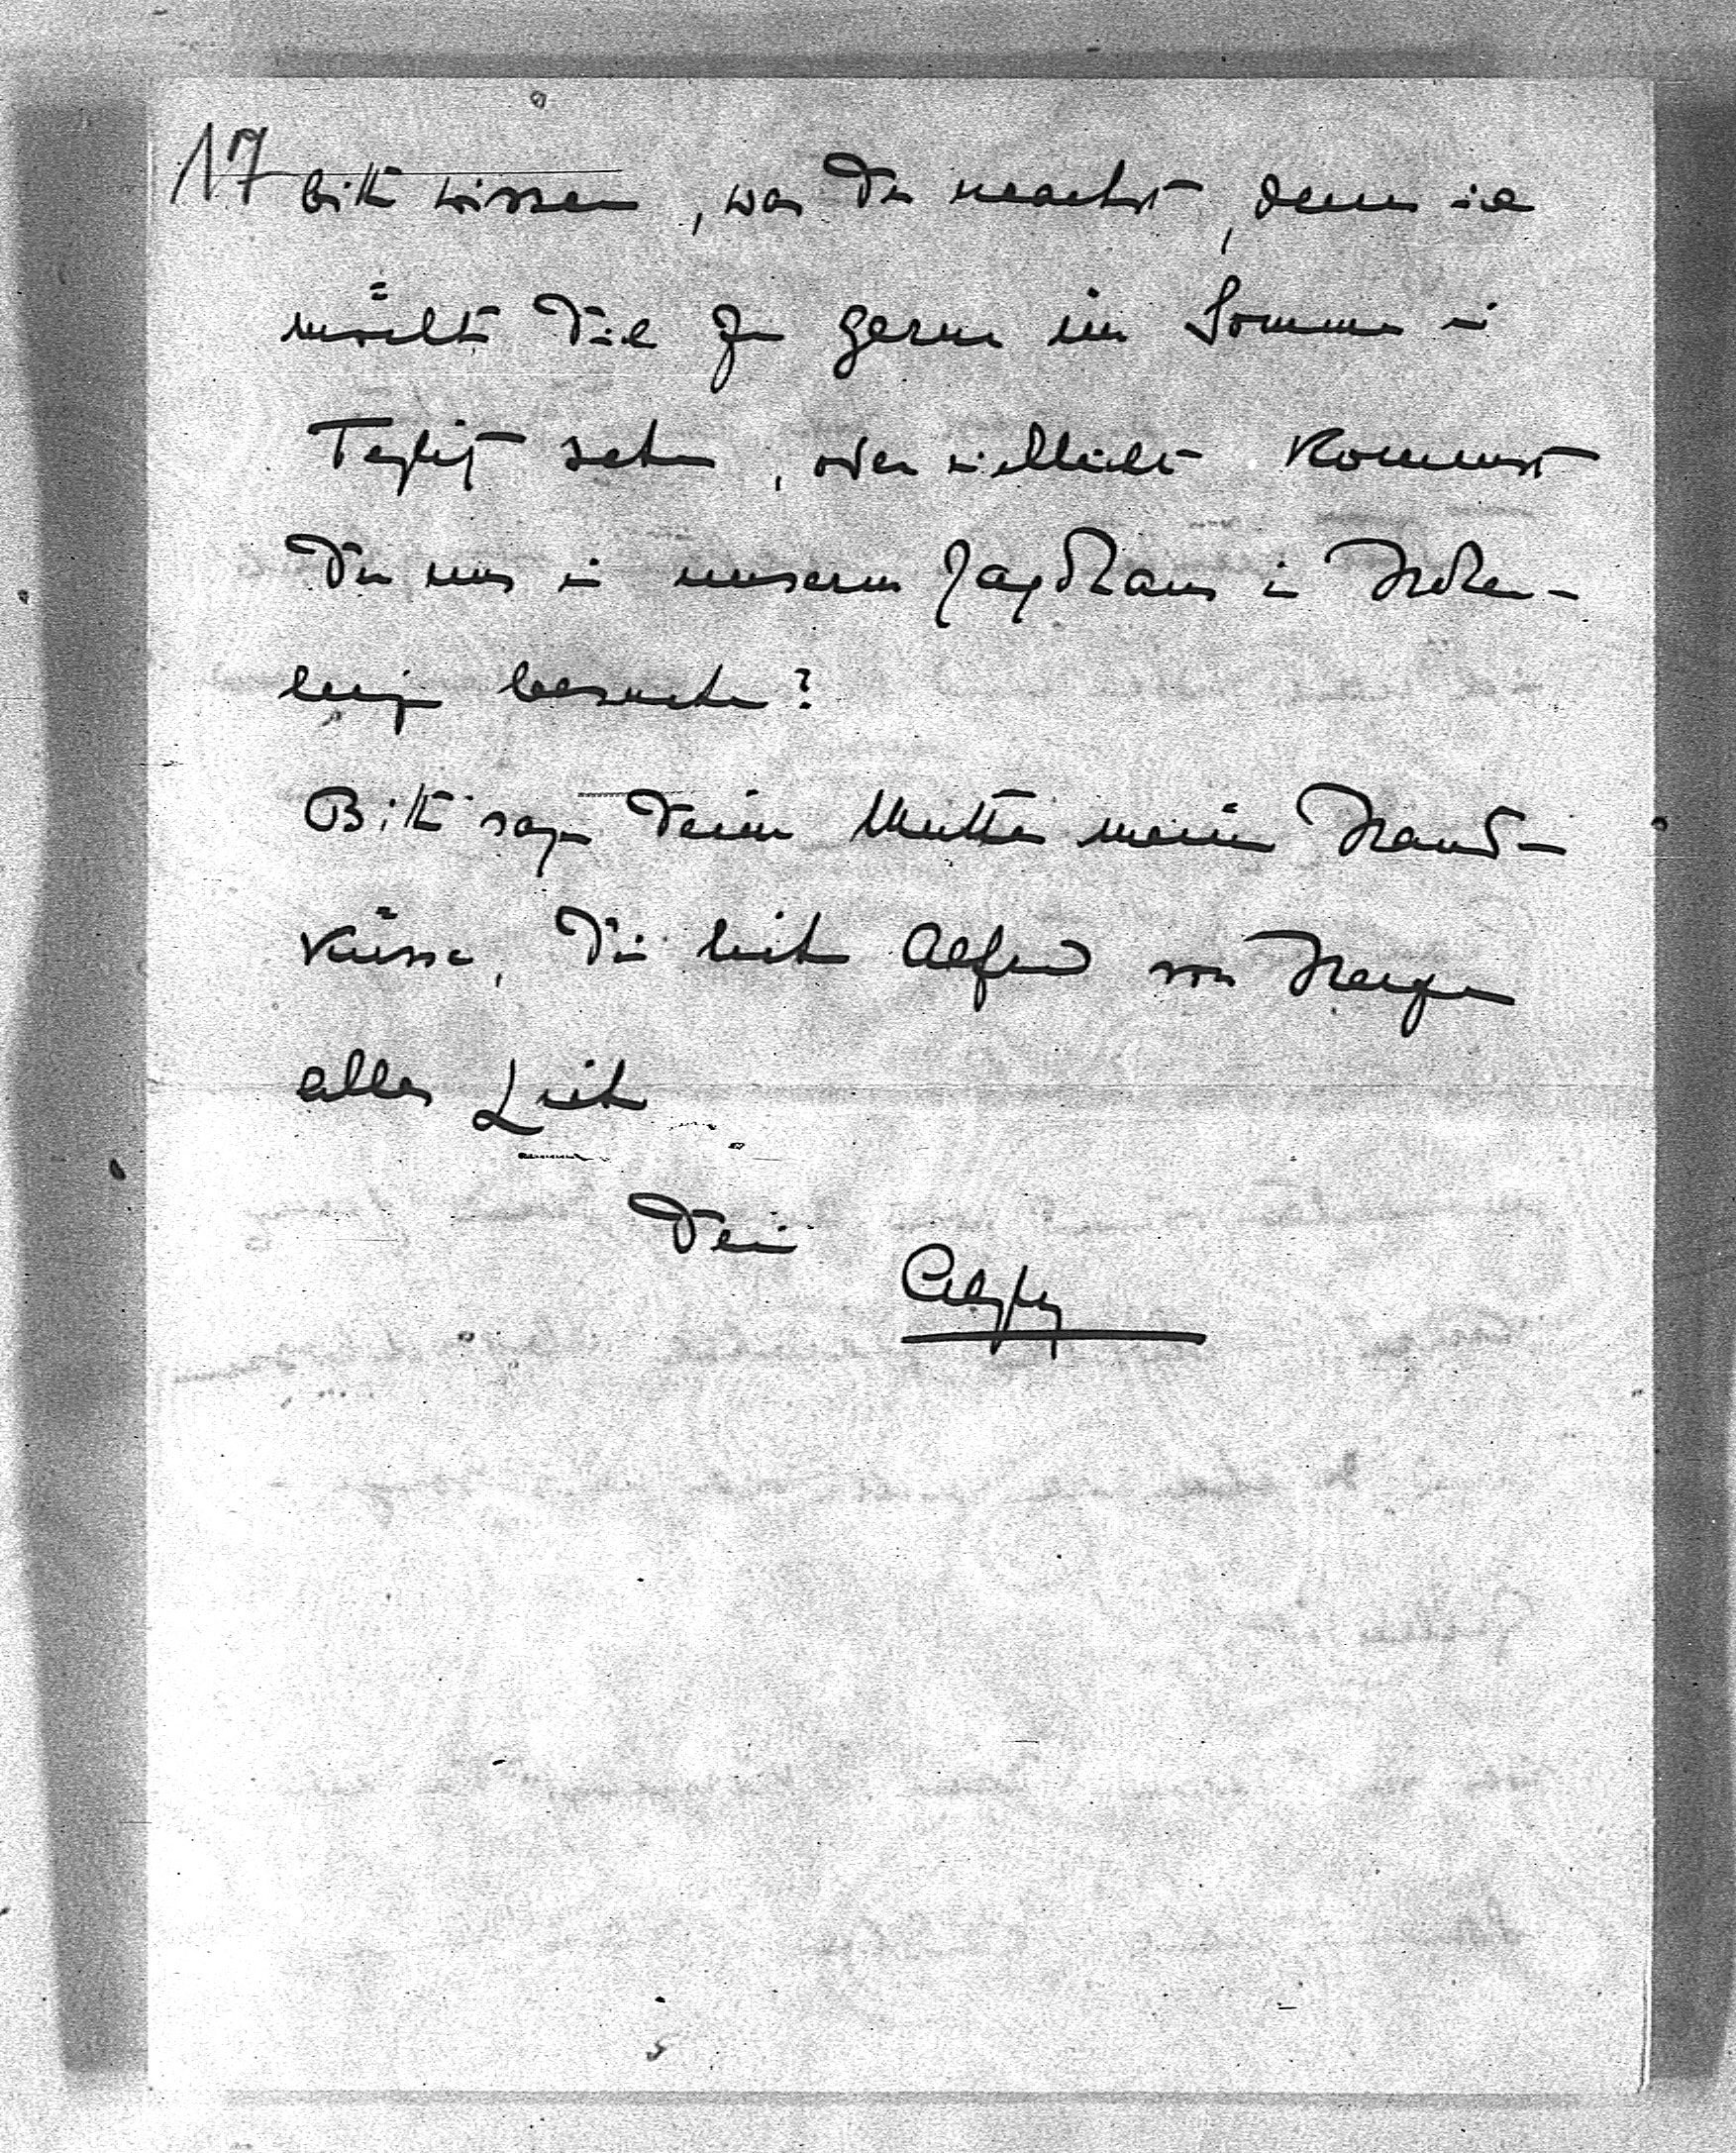 17 bitte wissen, was Du machst, denn ich
möchte Dich zu gerne im Sommer in
Teplitz sehen, oder vielleicht kommst
Du uns in unserem Jagdhaus in Hohen-
besuchen?
Bitte sage Deiner Mutter meine Hand-
küsse, Dir lieber Alfred von Herzen
alles Liebe
Dein